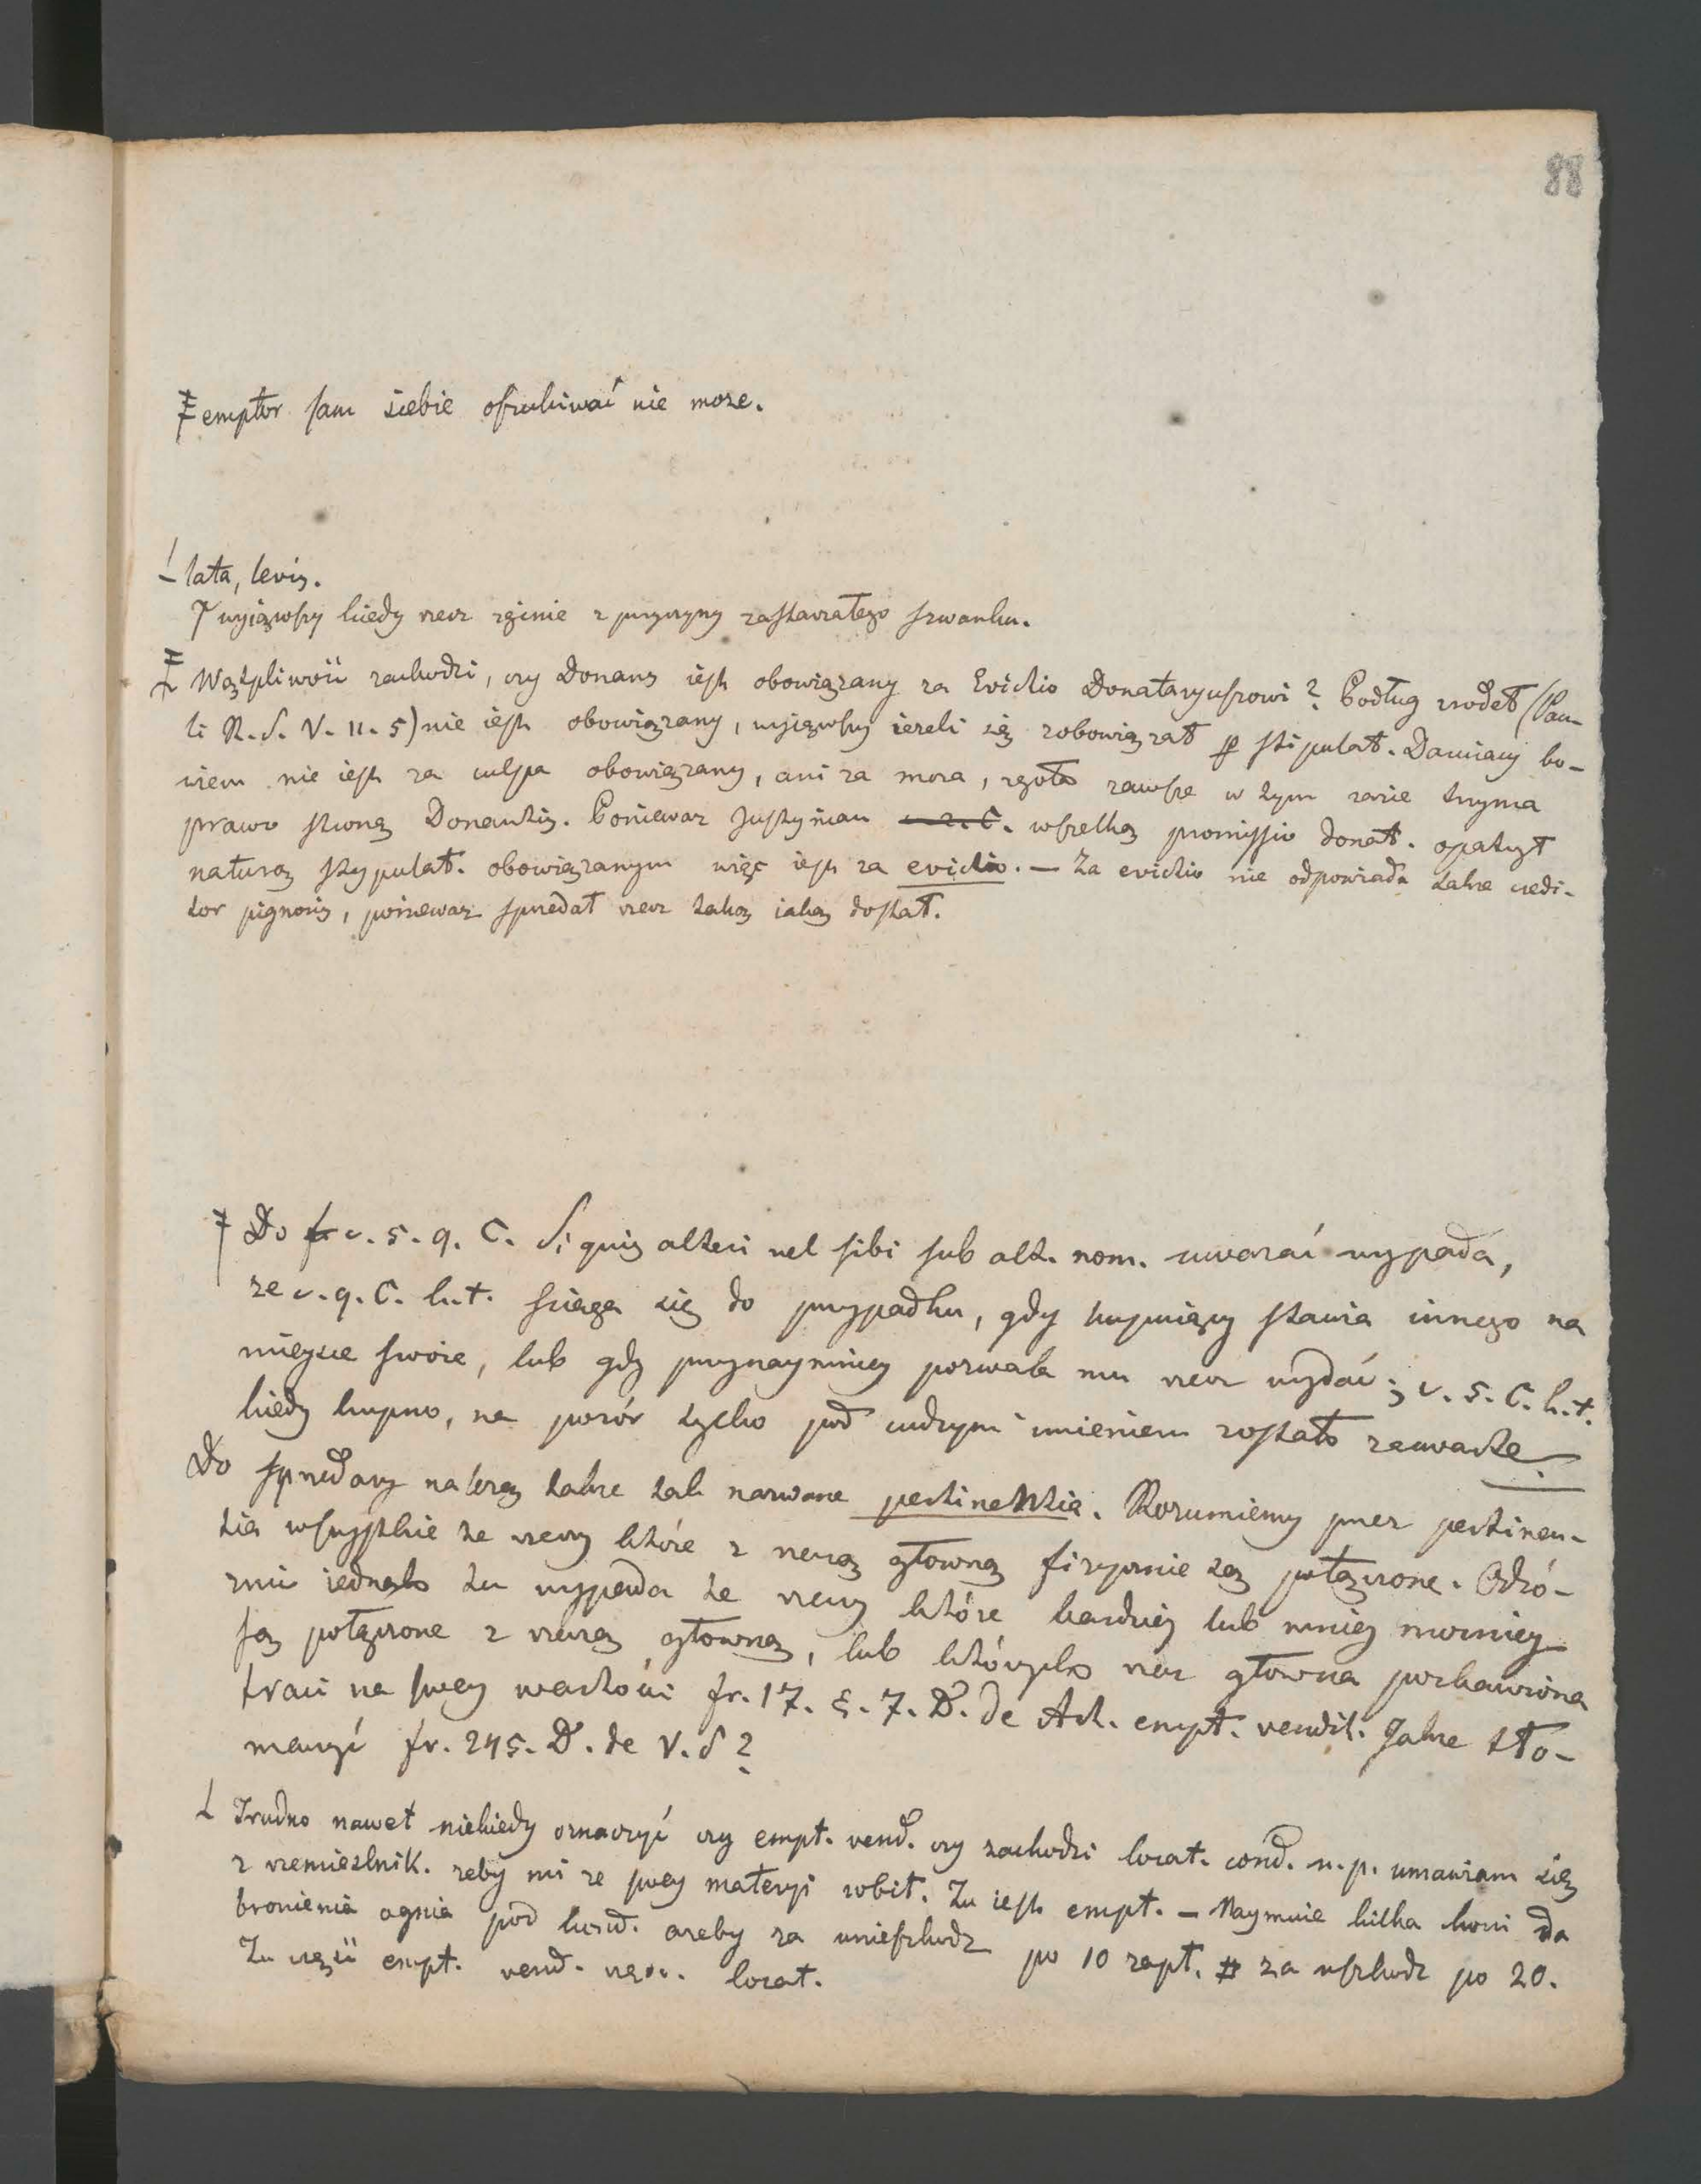 88
emptor sam siebie oszukiwać nie moze.
lata, levis.
wyiąwszy kiedy rzecz zginie z przyczyny zastarzałego szwanku.
Wątpliwość zachodzi, czy Donans iest obowiązany za Evictio Donataryuszowi? Podług zrodeł (Pau-
li R. S. V. 11. 5) nie iest obowiązany, wyiąwszy iezeli się zobowiązał p stipulat. Daruiący bo-
wiem nie iest za culpa obowiązany, ani za mora, zgoła zawsze w tym razie trzyma
prawo stronę Donantis. Poniewaz Justynian c. 2. C. wszelką promissio donat. opatrzył
naturą stypulat. obowiązanym więc iest za evictio. — Za evictio nie odpowiada takze credi-
tor pignoris, poniewaz sprzedał rzecz taką iaką dostał.
Do fr c. 5. 9. C. Si quis alteri vel sibi sub alt. nom. uwazać wypada,
ze c. 9. C. h. t. sciąga się do przypadku, gdy kupuiący stawia innego na
mieysce swoie, lub gdy przynaymniey pozwala mu rzecz wydać; c. 5. C. h. t.
kiedy kupno, na pozór tylko pod cudzym imieniem zostało zawarte.
Do sprzedazy nalezą takze tak nazwane pertinentia. Rozumiemy przez pertinen-
tia wszystkie te rzeczy które z rzeczą głowną fizycznie są połączone. Odró-
znić iednako tu wypada te rzeczy które bardziey lub mniey mocniey
są połączone z rzeczą głowną, lub których rzecz głowna pozbawiona
traci na swey wartości fr. 17. §. 7. D. de Act. empt. vendit. Jakie tło-
maczyć fr. 245. D. de V. S?
Trudno nawet niekiedy oznaczyć czy empt. vend. czy zachodzi locat. cond. n. p. umawiam się
z rzemieslnik. zeby mi ze swey materyi robił. Tu iest empt. — Naymuie kilka koni da
bronienia ognia pod kond. azeby za nieszkodz po 10 zapł. # za uszkodz po 20.
Tu część empt. vend. częsc. locat.